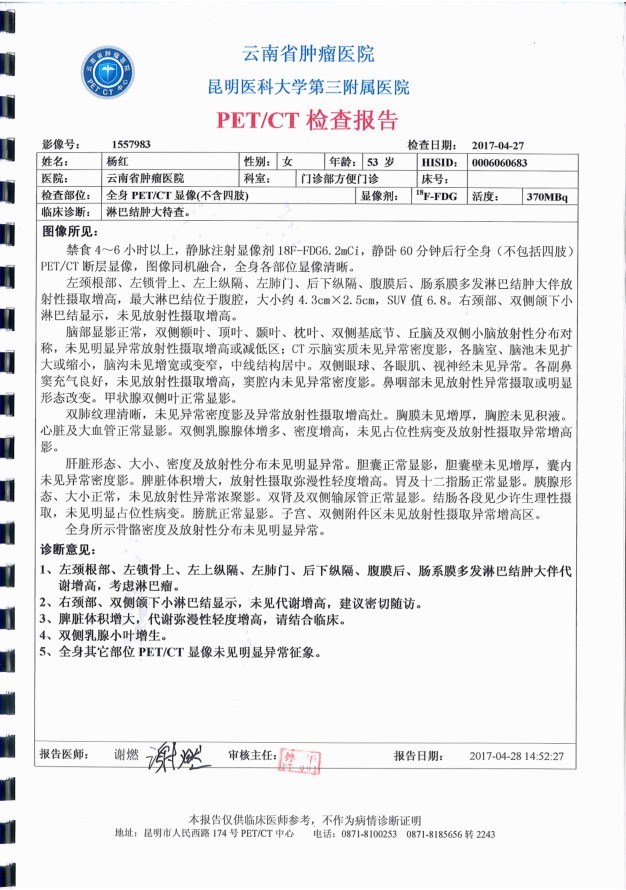 云南省肿瘤医院
昆明医科大学第三附属医院
PET/CT 检查报告
影像号: 1557983 检查日期: 2017-04-27
姓名: 杨红 性别: 女 年龄: 53 岁 HISID: 0006060683
医院: 云南省肿瘤医院 科室: 门诊部方便门诊 床号:
检查部位: 全身 PET/CT 显像(不含四肢) 显像剂: 18F-FDG 活度: 370MBq
临床诊断: 淋巴结肿大待查。
图像所见:
禁食 4～6 小时以上，静脉注射显像剂 18F-FDG6.2mCi，静卧 60 分钟后行全身（不包括四肢）
PET/CT 断层显像，图像同机融合，全身各部位显像清晰。
左颈根部、左锁骨上、左上纵隔、左肺门、后下纵隔、腹膜后、肠系膜多发淋巴结肿大伴放
射性摄取增高，最大淋巴结位于腹腔，大小约 4.3cm×2.5cm，SUV 值 6.8。右颈部、双侧颌下小
淋巴结显示，未见放射性摄取增高。
脑部显影正常，双侧额叶、顶叶、颞叶、枕叶、双侧基底节、丘脑及双侧小脑放射性分布对
称，未见明显异常放射性摄取增高或减低区；CT 示脑实质未见异常密度影，各脑室、脑池未见扩
大或缩小，脑沟未见增宽或变窄，中线结构居中。双侧眼球、各眼肌、视神经未见异常。各副鼻
窦充气良好，未见放射性摄取增高，窦腔内未见异常密度影。鼻咽部未见放射性异常摄取或明显
形态改变。甲状腺双侧叶正常显影。
双肺纹理清晰，未见异常密度影及异常放射性摄取增高灶。胸膜未见增厚，胸腔未见积液。
心脏及大血管正常显影。双侧乳腺腺体增多、密度增高，未见占位性病变及放射性摄取异常增高
影。
肝脏形态、大小、密度及放射性分布未见明显异常。胆囊正常显影，胆囊壁未见增厚，囊内
未见异常密度影。脾脏体积增大，放射性摄取弥漫性轻度增高。胃及十二指肠正常显影。胰腺形
态、大小正常，未见放射性异常浓聚影。双肾及双侧输尿管正常显影。结肠各段见少许生理性摄
取，未见明显占位性病变。膀胱正常显影。子宫、双侧附件区未见放射性摄取异常增高区。
全身所示骨骼密度及放射性分布未见明显异常。
诊断意见:
1、左颈根部、左锁骨上、左上纵隔、左肺门、后下纵隔、腹膜后、肠系膜多发淋巴结肿大伴代
谢增高，考虑淋巴瘤。
2、右颈部、双侧颌下小淋巴结显示，未见代谢增高，建议密切随访。
3、脾脏体积增大，代谢弥漫性轻度增高，请结合临床。
4、双侧乳腺小叶增生。
5、全身其它部位 PET/CT 显像未见明显异常征象。
报告医师: 谢燃 谢燃 审核主任: 报告日期: 2017-04-28 14:52:27
本报告仅供临床医师参考，不作为病情诊断证明
地址：昆明市人民西路 174 号 PET/CT 中心 电话：0871-8100253 0871-8185656 转 2243